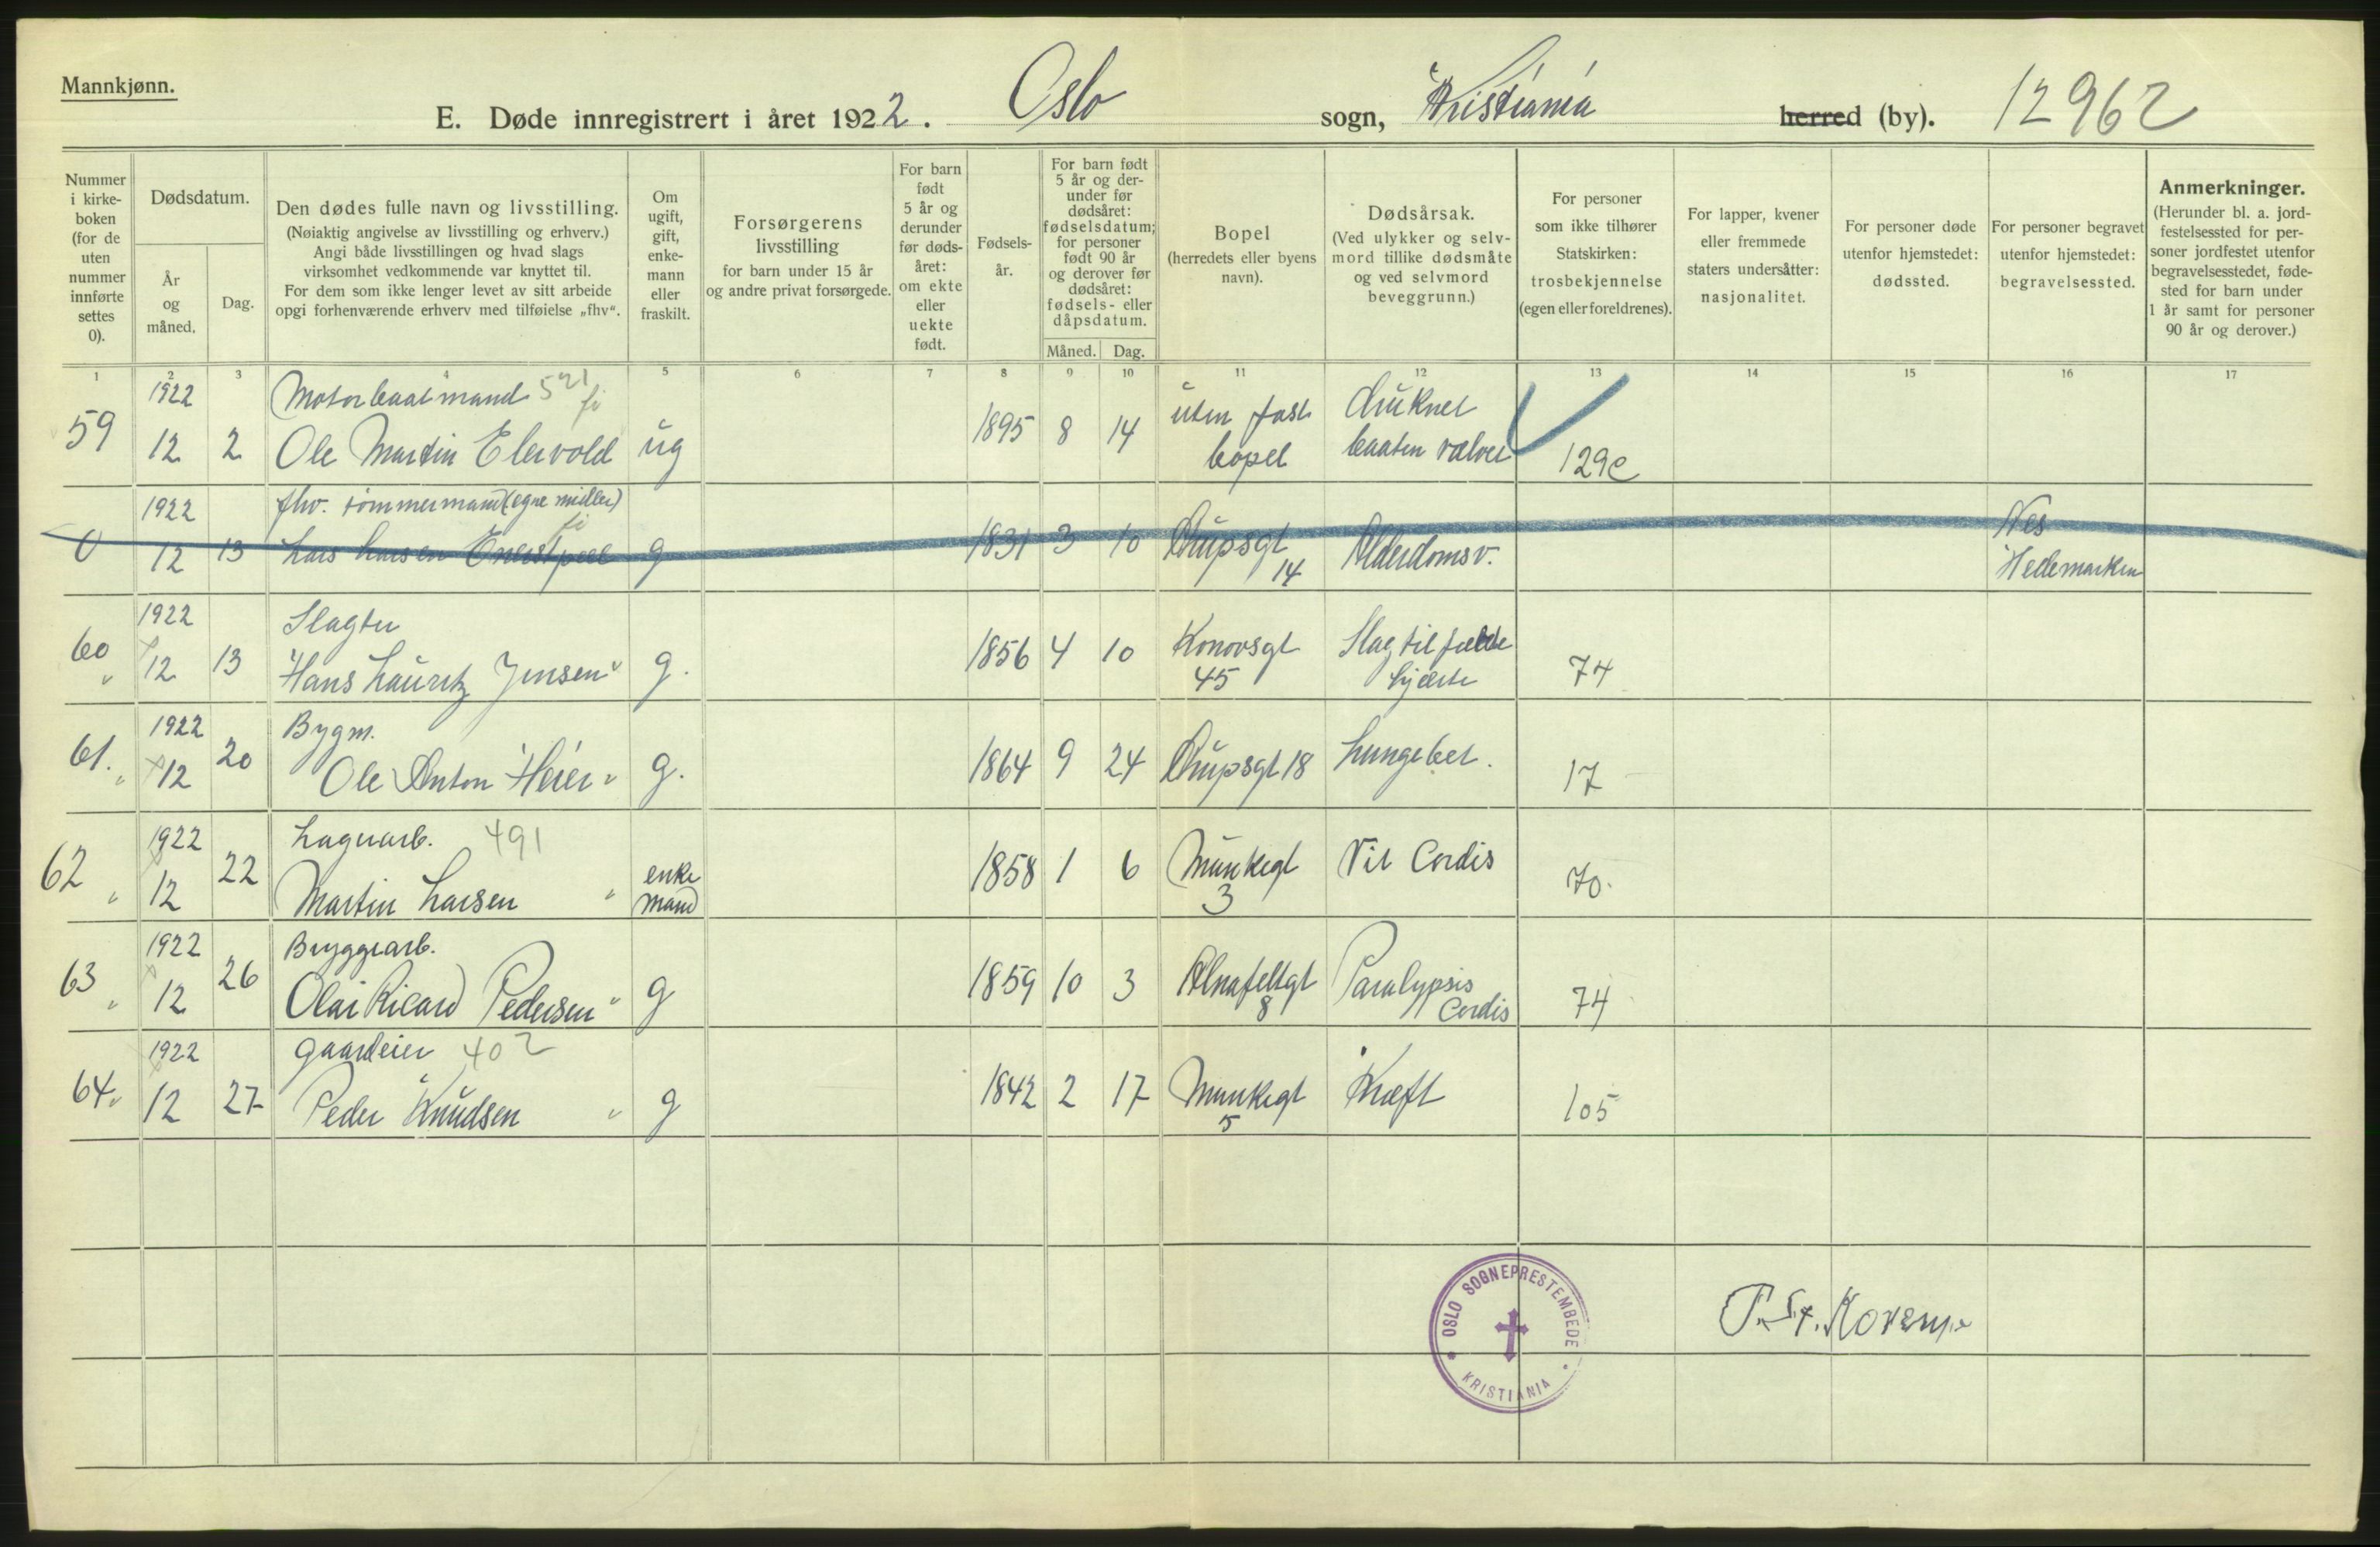 Mannkjønn.
E. Døde innregistrert i året 1922. Oslo sogn, Kristiania herred (by). 12962
Nummer i kirke-boken (for de uten nummer innførte settes 0).
Dødsdatum.
År og måned.
Dag.
Den dødes fulle navn og livsstilling.
(Nøiaktig angivelse av livsstilling og erhverv.)
Angi både livsstillingen og hvad slags
virksomhet vedkommende var knyttet til.
For dem som ikke lenger levet av sitt arbeide
opgi forhenværende erhverv med tilføielse „fhv“.
Om ugift, gift, enke-mann eller fraskilt.
Forsørgerens livsstilling
for barn under 15 år
og andre privat forsørgede.
For barn født 5 år og derunder før døds-året: om ekte eller uekte født.
Fødsels-år.
For barn født 5 år og der-under før dødsåret: fødselsdatum; for personer født 90 år og derover før dødsåret: fødsels- eller dåpsdatum.
Måned. Dag.
Bopel
(herredets eller byens navn).
Dødsårsak.
(Ved ulykker og selv-mord tillike dødsmåte og ved selvmord beveggrunn.)
For personer som ikke tilhører Statskirken: trosbekjennelse (egen eller foreldrenes).
For lapper, kvener eller fremmede staters undersåtter: nasjonalitet.
For personer døde utenfor hjemstedet: dødssted.
For personer begravet utenfor hjemstedet: begravelsessted.
Anmerkninger.
(Herunder bl. a. jord-festelsessted for per-soner jordfestet utenfor begravelsesstedet, føde-sted for barn under 1 år samt for personer 90 år og derover.)
1 2 3 4 5 6 7 8 9 10 11 12 13 14 15 16 17
1922 Motorbaatmand 521 fi uten fast druknet
59 12 2 Ole Martin Elervold ug 1895 8 14 bopel baaten vælvet 129c
1922 fhv. tømmermand (egne midler) fi Nes
0 12 13 Lars Larsen g 1831 3 10 Drupsgt 14 Alderdomsv. Hedemarken
1922 Slagter Konowsgt Slagtilfælde
60 " 12 13 Hans Lauritz Jensen " g. 1856 4 10 45 hjerte 74
1922 Bygm.
61. " 12 20 Ole Anton Heier " g. 1864 9 24 Drupsgt 18 Lungebet. 17
1922 Lagerarb. 491
62 " 12 22 Martin Larsen " enke mand 1858 1 6 Munkegt 3 Vit Cordis 70.
1922 Bryggearb.
63 " 12 26 Olai Ricard Pedersen " g 1859 10 3 Alnafeltgt 8 Paralypsis Cordis 74
1922 Gaardeier 402
64. " 12 27 Peder Knudsen " g 1842 2 17 Munkegt 5 Kræft 105
OSLO SOGNEPRESTEMBEDE
KRISTIANIA